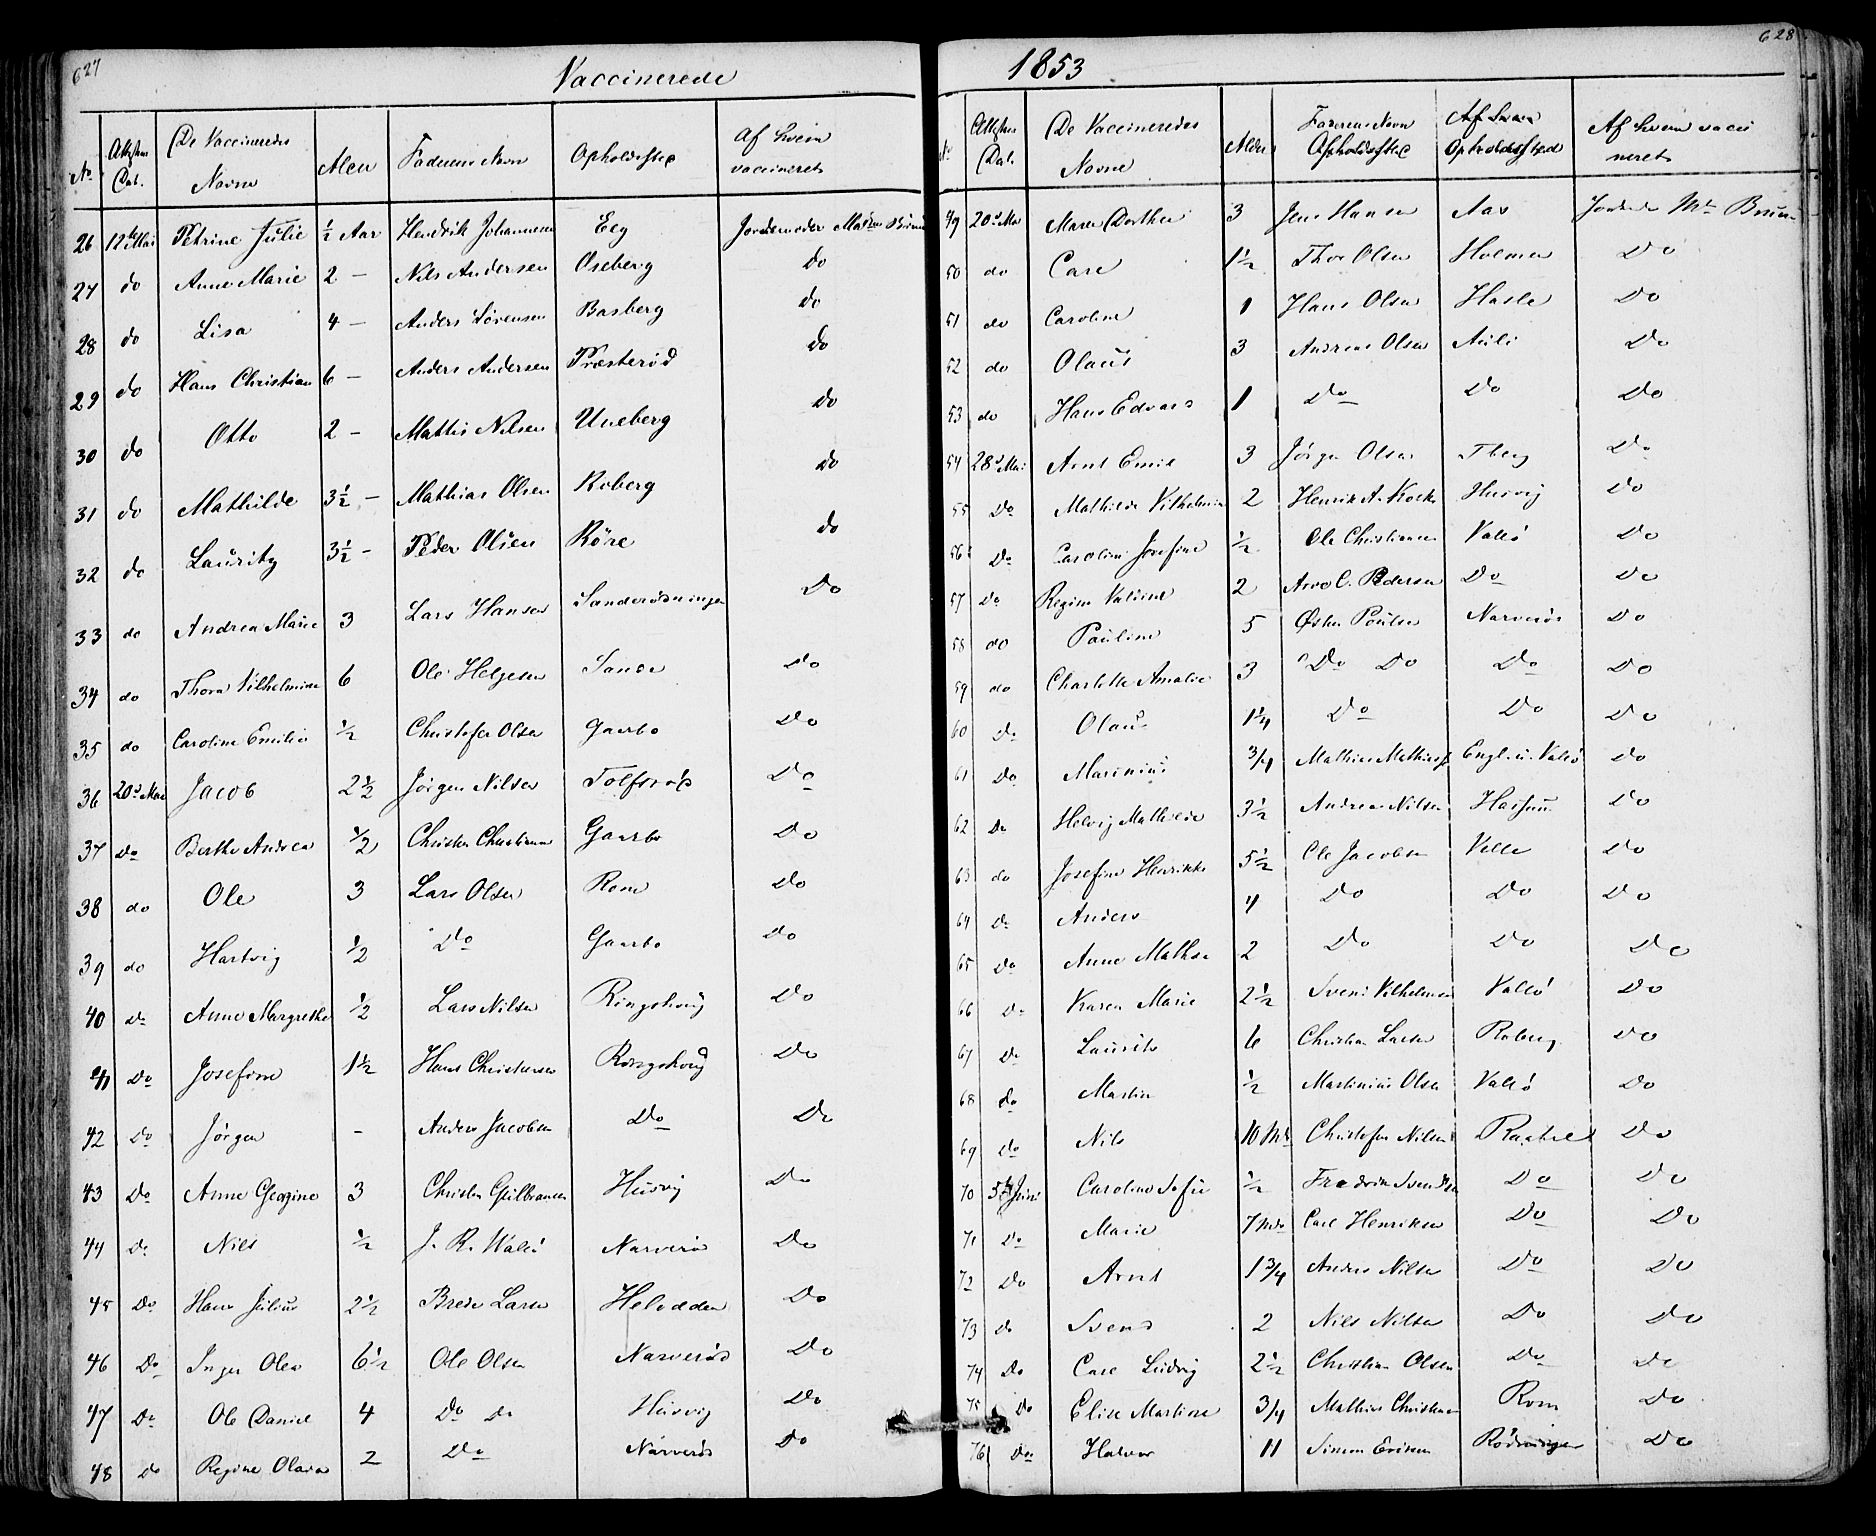 627
Vaccinerede
No Attesten Dat. De Vaccineredes Navne Alder Faderens Navn Opholdssted Af hvem vaccineret
26 12te Mai Petrine Julie ½ Aar Hendrik Johannesen Eeg Jordemoder Madm Bruun
27 do Anne Marie 2 — Nils Andersen Oseberg do
28 do Lisa 4 — Anders Sørensen Basberg do
29 do Hans Christian 6 — Anders Andersen Præsterød do
30 do Otto 2 — Mathis Nilsen Uneberg do
31 do Mathilde 3½ — Mathias Olsen Roberg do
32 do Lauritz 3½ — Peder Olsen Röre do
33 do Andrea Marie 3 Lars Hansen Sanderødningen Do
34 do Thora Vilhelmine 6 Ole Helgesen Sande Do
35 do Caroline Emilie ½ Christofer Olsen Gaarbo Do
36 20d Mai Jacob 2½ Jørgen Nilsen Tolfsrød Do
37 Do Berthe Andrea ½ Christen Christiansen Gaarbo Do
38 do Ole 3 Lars Olsen Rom Do
39 do Hartvig ½ Do Gaarbo Do
40 Do Anne Margrethe ½ Lars Nilsen Ringshoug Do
41 Do Josefine 1½ Hans Christensen Ringshoug Do
42 Do Jörgen - Anders Jacobsen Do Do
43 Do Anne Georgine 3 Christen Gulbransen Husvig Do
44 Do Nils ½ J. R. Walø Narverø Do
45 Do Hans Julius 2½ Brede Larsen Helvedden Do
46 Do Inger Olea 6½ Ole Olsen Narverød Do
47 Do Ole Daniel 4 Do Do Husvig Do
48 Do Regine Olava 2 Do Narverød Do
628
1853
No Attesten Dat. De Vaccineredes Navne Alder Faderens Navn Opholdssted Af hvem Opholdssted Af hvem vacci neret
49 20d Mai Maren Dorthea 3 Jens Hansen Aas Jordm Mm Bruun
50 do Carl 1½ Thor Olsen Holmen Do
51 do Caroline 1 Hans Olsen Hasle Do
52 do Olaus 3 Andreas Olsen Auli Do
53 do Hans Edvard 1 Do Do Do
54 28d Mai Arnt Emil 3 Jörgen Olsen Tberg Do
55 Do Mathilde Vilhelmine 2 Henrik A. Kock Husvig Do
56 Do Caroline Josefine ½ Ole Christiansen Vallö Do
57 Do Regine Valine 2 Arve C. Pedersen Do Do
58 do Pauline 5 Østen Poulsen Narverød Do
59 do Charlotte Amalie 3 Do Do Do Do
60 Do Olaus 1¼ Do Do Do
61 Do Marinius ¾ Mathias Mathiesen Engl. u. Vallö Do
62 Do Helvig Mathilde 3½ Andreas Nilsen Hassum Do
63 do Josefine Henrikke 5½ Ole Jacobsen Velle Do
64 Do Anders 4 Do Do Do
65 Do Anne Mathea 2 Do Do Do
66 Do Karen Marie 2½ Svend Vilhelmsen Vallö Do
67 Do Laurits 6 Christian Larsen Roberg Do
68 do Martin ½ Martinius Olsen Vallö Do
69 Do Nils 10 Md Christofer Nilsen Raastad Do
70 5te Juni Caroline Sofie ½ Fredrik Svendsen Do Do
71 Do Marie 7 Md Carl Henriksen Do Do
72 Do Arnt 1¾ Anders Nilsen Do Do
73 do Svend 2 Nils Nilsen Do Do
74 Do Carl Ludvig 2½ Christian Olsen Do Do
75 Do Elise Martine ¾ Mathias Christensen Rom Do
76 Do Halvor 11 Simon Eriksen Rödningen Do